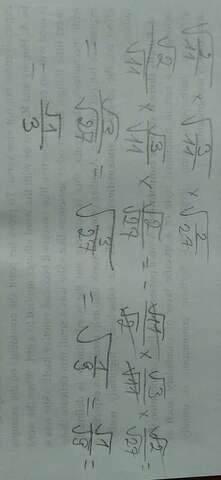 √2/11 × √3/11 × √2/27
√2/√11 × √3/√11 × √2/√27 = √11/√2 × √3/√11 × √2/√27 =
= √3/√27 = √3/27 = √1/9 = √1/√9 =
= √1/3